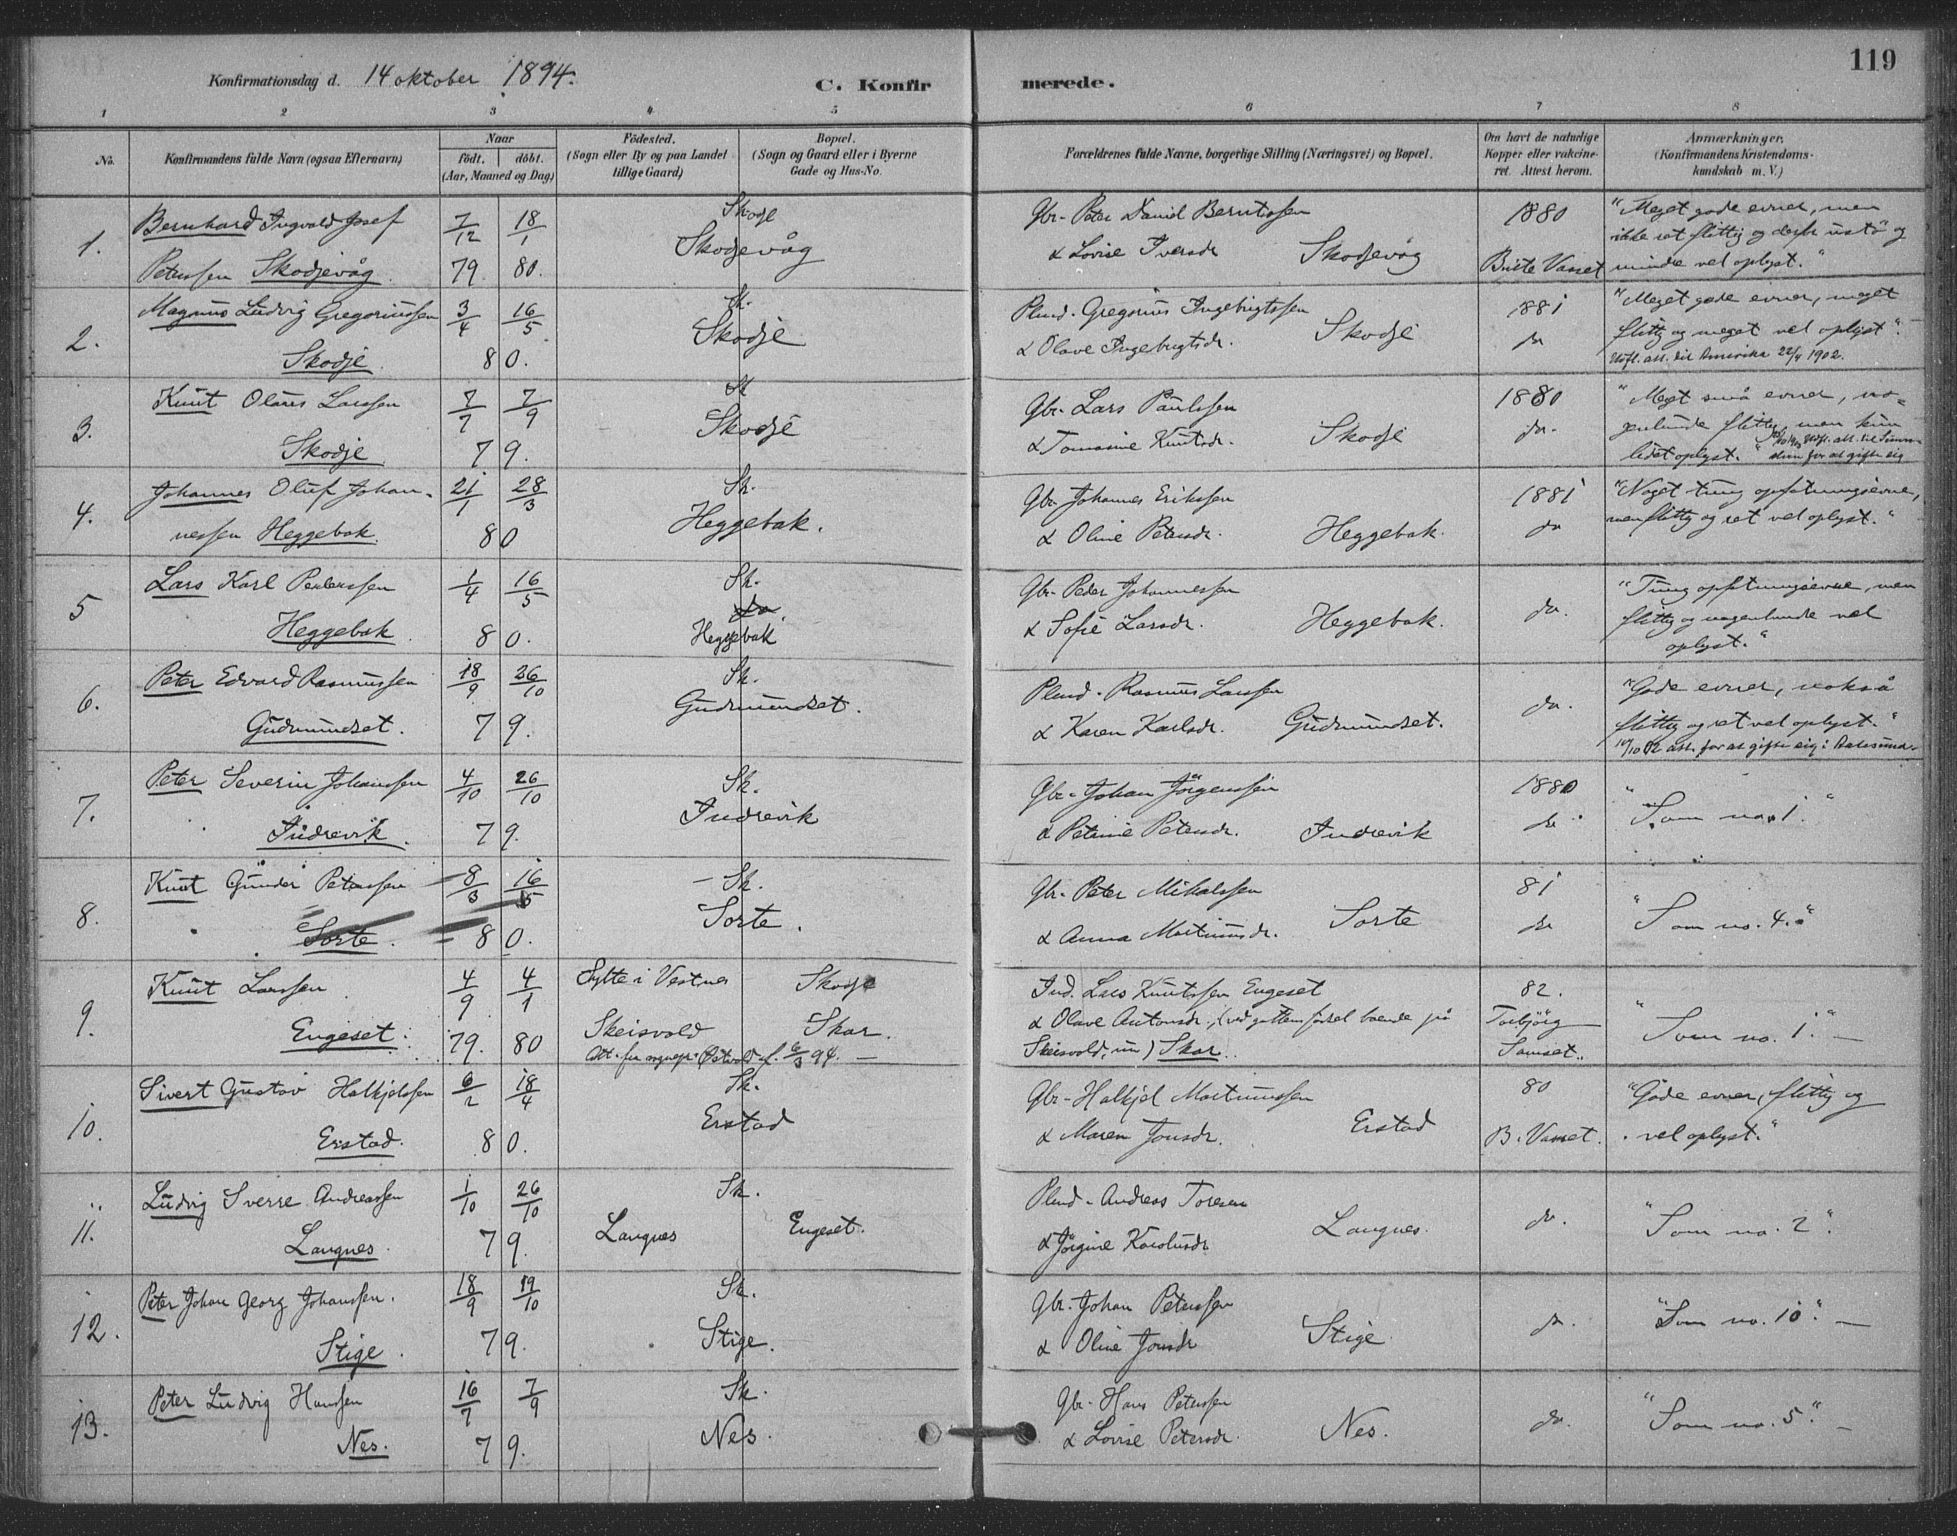 119
Konfirmationsdag d. 14 oktober 1894.
C. Konfirmerede.
1 2 3 4 5 6 7 8
No.
Konfirmandens fulde Navn (ogsaa Efternavn)
Naar
födt. | döbt.
(Aar, Maaned og Dag)
Födested.
(Sogn eller By og paa Landet
tillige Gaard)
Bopæl.
(Sogn og Gaard eller i Byerne
Gade og Hus-No.
Forældrenes fulde Navne, borgerlige Stilling (Næringsvei) og Bopæl.
Om havt de naturlige
Kopper eller vakcine-
ret. Attest herom.
Anmærkninger.
(Konfirmandens Kristendoms-
kundskab m. V.)
1. Bernhard Ingvald Josef 7/12 18/1 Skodje Gbr. Peter David Berntssen 1880 "Meget gode evner, men
ikke ret flittig og derfor ustø og
Peterssen Skodjevåg 79. 80. Skodjevåg & Lovise Iversdr. Skodjevåg Brite Vasset mindre vel oplyst."
2. Magnus Ludvig Gregoriussen 3/4 16/5 Sk. Plmd. Gregorius Ingebrigtssen 1881 "Meget gode evner, meget
Skodje. 80. Skodje & Olave Ingebrigtsdr. Skodje do flittig og meget vel oplyst."
Udfl. att. til Amerika 22/4 1902.
3. Knut Olaus Larssen 7/7 7/9 Sk Gbr. Lars Paulssen 1880 "Meget små evner, no-
genlunde flittig, men kun
Skodje 79. Skodje & Tomasine Knutsdr. Skodje do. lidet oplyst."
for at gifte sig
4. Johannes Oluf Johan- 21/1 28/3 Sk. Gbr. Johannes Erikssen 1881 "Noget tung opfatningsevne,
nessen Heggebak. 80 Heggebak. & Oline Petersdr. Heggebak. do men flittig og ret vel oplyst."
5 Lars Karl Pederssen 1/4 16/5 Sk. Gbr. Peder Johannessen do. "Tung opfatningsevne, men
do
Heggebak. 80. Heggebak & Sofie Larsdr. Heggebak. flittig og nogenlunde vel
oplyst."
6. Peter Edvard Rasmussen 18/9 26/10 Sk. Plmd. Rasmus Larssen do. "Gode evner, nokså
Gudmundset. 79. Gudmundset. & Karen Karlsdr. Gudmundset. flittig og ret vel oplyst."
10/10 02 att. for at gifte sig i Aalesund.
7. Peter Severin Johanssen 4/10 26/10 Sk. Gbr. Johan Jörgenssen 1880 "Som no. 1."
Indrevik. 79. Indrevik & Petrine Petersdr. Indrevik do
8. Knut Gunder Peterssen 8/3 16/5 Sk. Gbr. Peter Mikalssen 81 "Som no. 4."
Sorte. 80. Sorte. & Anna Martinusdr. Sorte do
9. Knut Larssen 4/9 4/1 Sylte i Vestnes Skodje Ind. Lars Knutssen Engeset 82.
Engeset. 79. 80 Skeisvold Skar. & Olave Antonsdr., (ved guttens fødsel boende på Torbjörg "Som no. 1."
Att. fra sognepr. Østvold af 6/3 94. Skeisvold, nu) Skar. Samset.
10. Sivert Gustav Halkjelssen 6/2 18/4 Sk. Gbr. Halkjel Martinussen 80 "Gode evner, flittig og
Erstad. 80. Erstad & Maren Jonsdr. Erstad B. Vasset. vel oplyst."
11. Ludvig Sverre Andreassen 1/10 26/10 Sk. Plmd. Andreas Toresen do. "Som no. 2".
Langnes. 79. Langnes Engeset. & Jörgine Karolusdr Langnes.
12. Peter Johan Georg Johanssen. 18/9 19/10 Sk. Gbr. Johan Peterssen do. "Som no. 10".
Stige. 79. Stige. & Oline Jonsdr Stige
13. Peter Ludvig Hanssen 16/7 7/9 Sk. Gbr. Hans Peterssen do. "Som no. 5".
Nes. 79. Nes. & Lovise Petersdr. Nes.